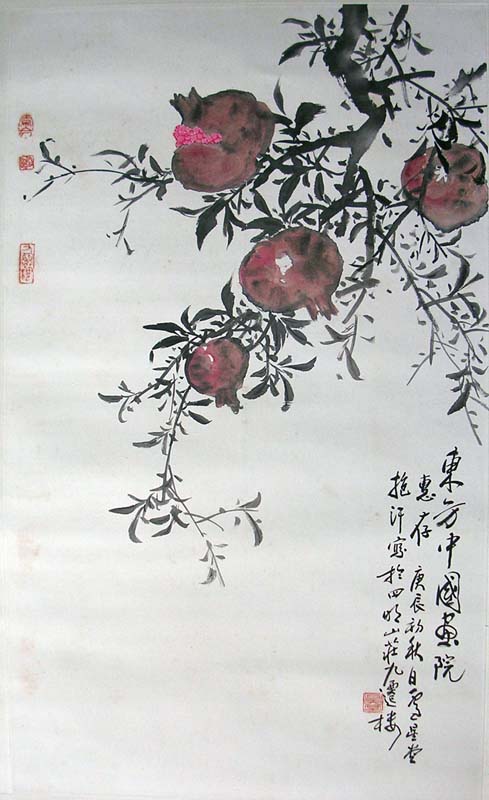 東方中國畫院
惠存 庚辰初秋日盧星堂
揮汗寫於四明山莊九遷樓